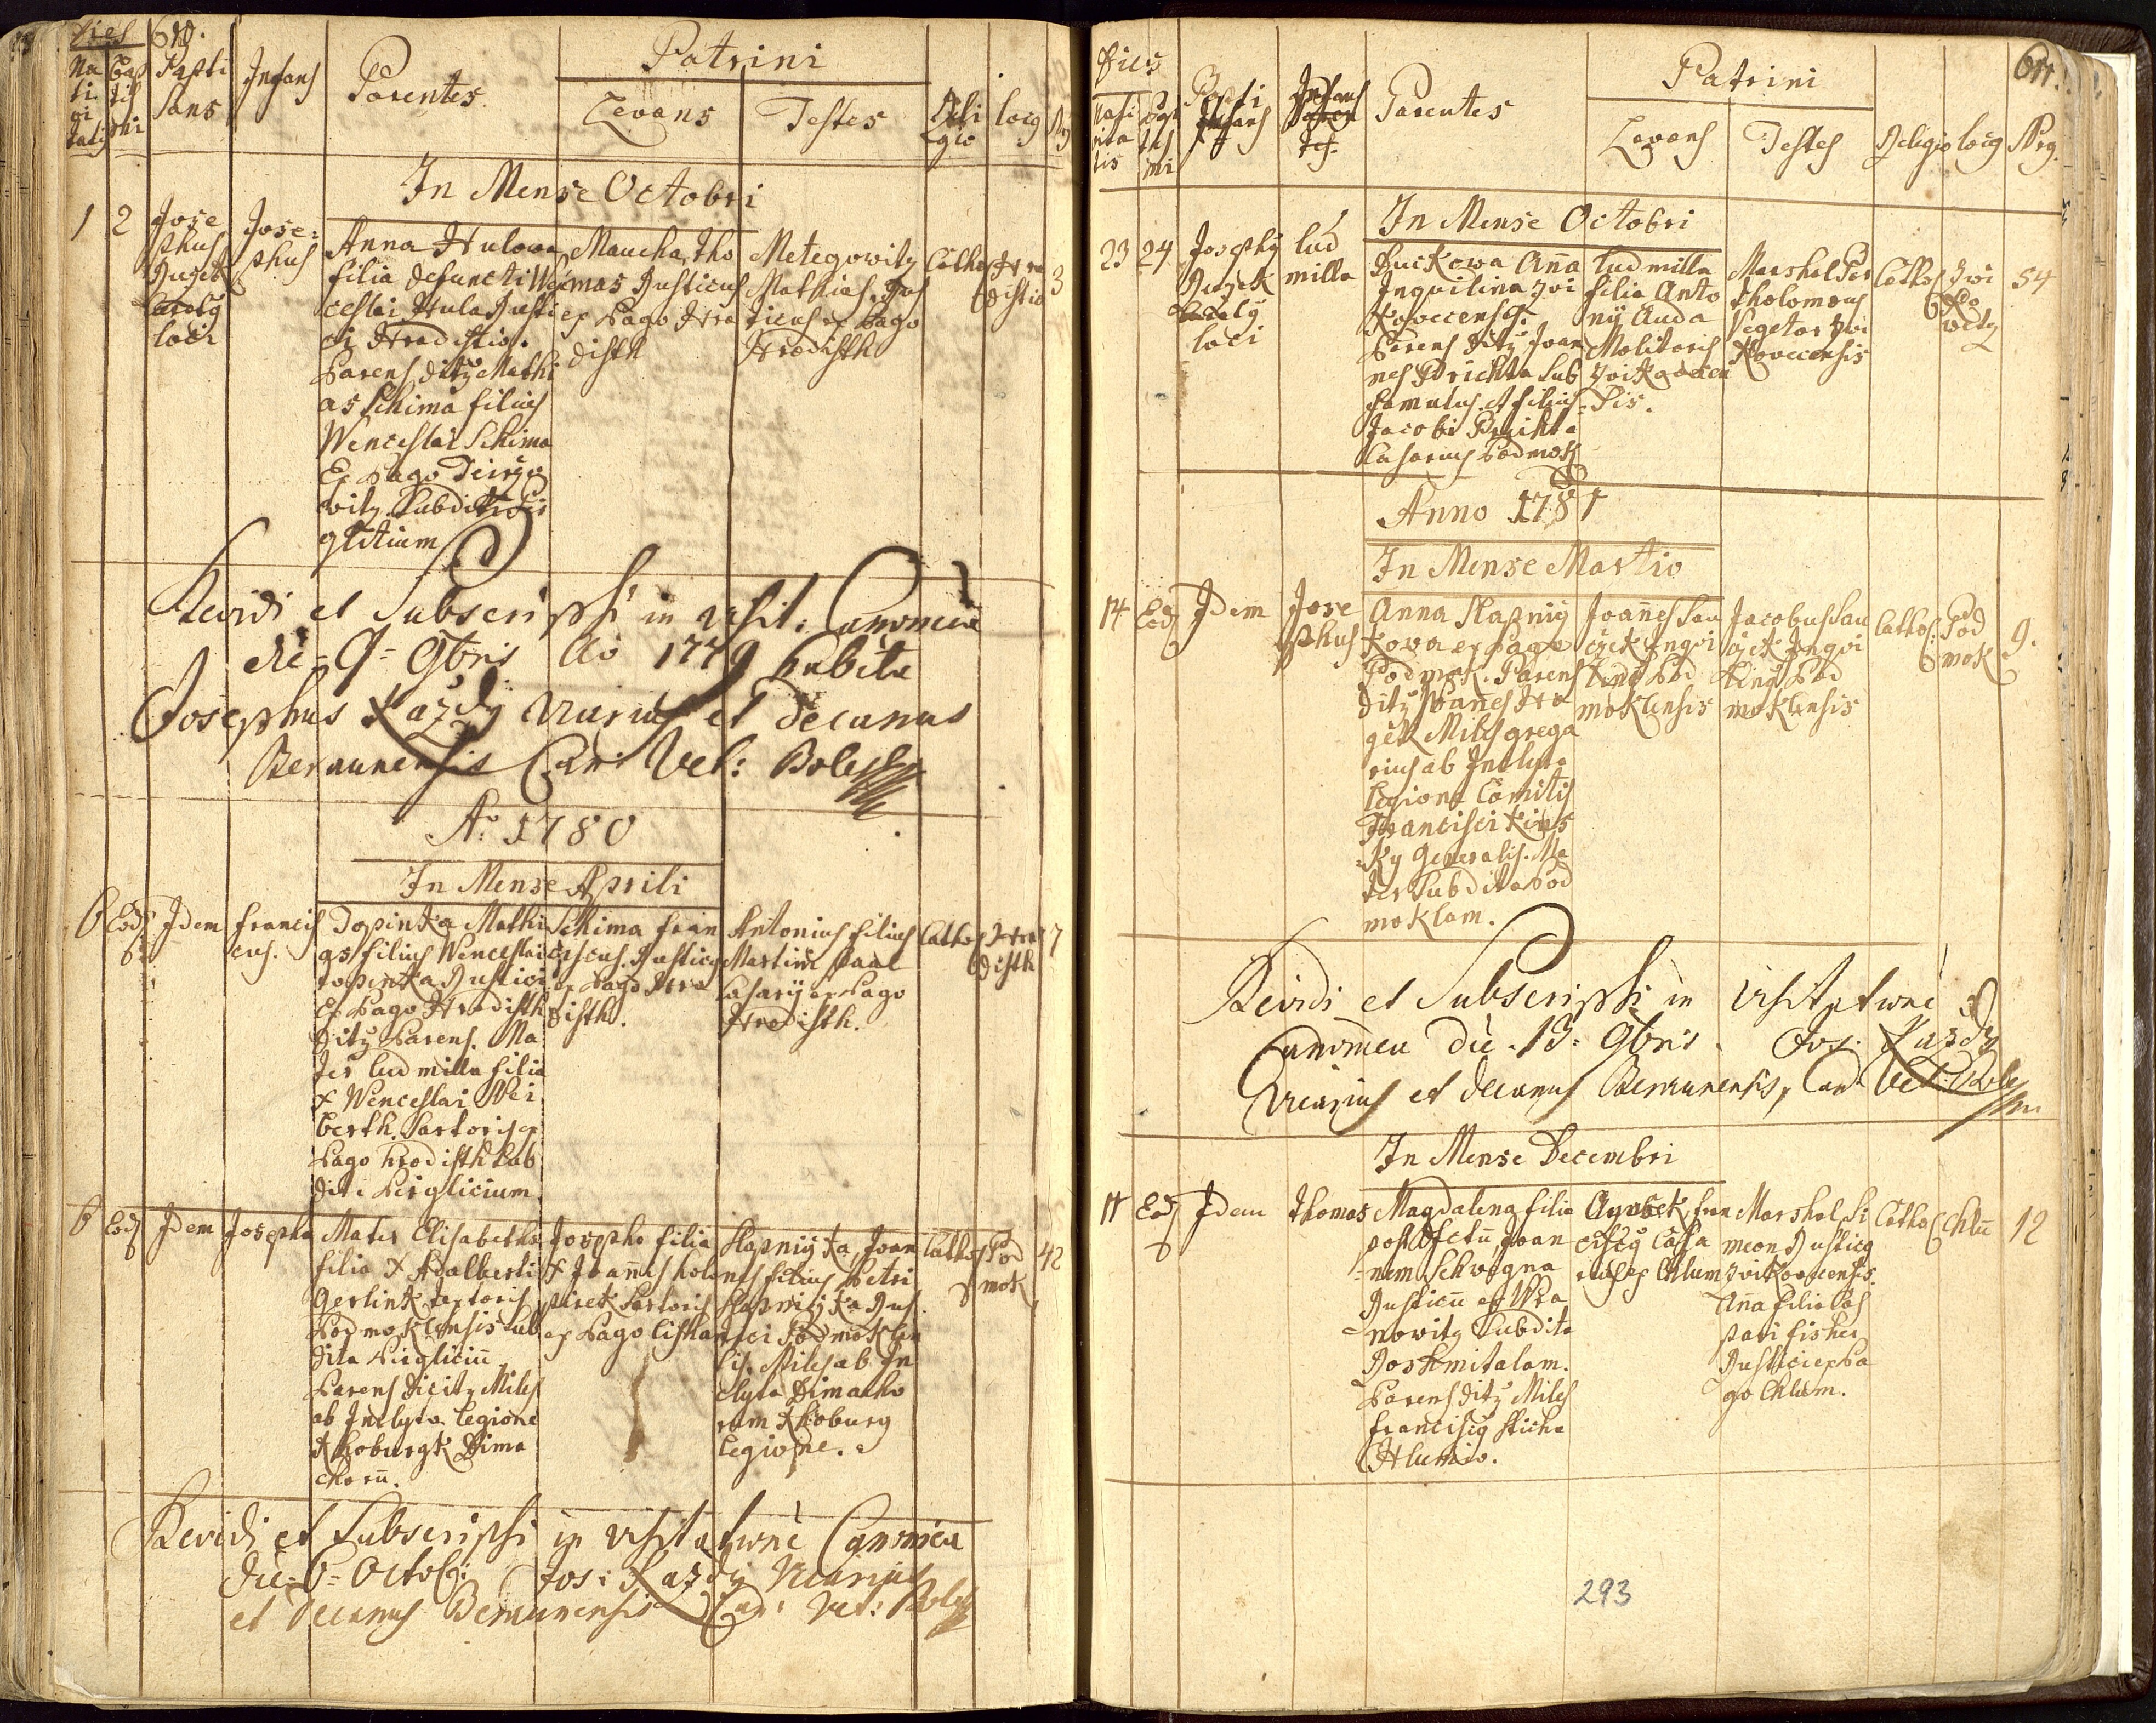 Dies
610.
Na
ti
vi
tatis
Bap
tis
mi
Bapti
sans
Infans
Parentes
Patrini
Levans
Testes
Reli
gio
locus
In Mense Octobri
1
2
Jose
phus
Duzek
loci
Jose=
phus
Anna Hulowa
filia defuncti We
ceslai Hula Justi
ci Hradistio.
Parens dits Mathi
as Schima filius
Wenceslai Schima
Ex Pago
witz Subdit
glitium
Maucha, Tho
mas Justicus
ex Pago Hra
disth
Metegowitz
Mathias Jus
ticus ex Pago
Hradisth
Catho
Hra
distio
3
Revidi et Subscripsi in visit: Canonica
die 9 9bris Ao 1779 habita
Josephus Kazdy Vicarius et Decanus
Beraunensis Can: Vet: Bolesl
Ao 1780
In Mense Aprili
6
Eod
Idem
Francis
cus.
Topinka Mathi
as filius Wenceslai
topinka Justici
Ex Pago Hradisth
dits Parens. Ma
ter Ludmilla filia
+ Wenceslai Wei
berth. Sartoris ex
Pago Hrodisth Sub
dita Pirglicium
Schima Fran
ciscus. Justicus
ex Pago Hra
disth.
Antonius filius
Martini paul
Casarij ex Pago
Hradisth.
Catho
Hra
disth
7
6
Eod
Idem
Josepha
Mater Elisabetha
filia + Adalberti
Gerlink textoris
Podmoklensis sub
dita Pirgliciu
Parens dicits Miles
ab Inclyta Legione
Khoburgk Dima
choru.
Josepha filia
+ Joannis holo
pirek Sartoris
ex Pago Liska
Slapnitzka, Joan
nes filius Petri
Slapnitzka Jus
tici Podmoklen
sis. Miles ab In
clyta Dimacho
rum Khoburg
Legione.
Catho
Pod
mok
42
Revidi et Subscripsi in visitatione Canonica
die 6 Octob: Jos: Kazdy Vicarius
et Decanus Beraunensis Can: Vet: Bolesl
Dies
611.
Nati
vita
tis
Bap
tis
mi
Bapti
sans
Infans
Parentes
Patrini
Levans
Testes
Religio
locus
Nrg.
In Mense Octobri
23
24
Josephus
Duzek
loci
Lud
milla
Anna
Inquilina Zwi
kovecensis.
Parens dits Joan
nes Prichta sub
famulus. et filius
Jacobi Prichta
Casarius Podmok
Ludmilla
filia Anto
nij Auda
Molitoris
Zwikovecen
sis.
Marshal Bar
tholomeus
Vegetor Zwi
kovecensis
Catho
Zwi
ko
wetz
54
Anno 1781
In Mense Martio
14
Eod
Idem
Jose
phus
Anna Slapnitz
kova ex Pago
Podmok. Parens
dits Joanes Hra
gek Miles grega
rius ab Inclyta
Legione Comitis
Francisci Kins
ky Generalis. Ma
ter Subdita Pod
moklam.
Joanes Sau
czek Inqui
linus Pod
moklensis
Jacobus Sau
czek Inqui
linus Pod
moklensis
Catho
Pod
mok
9.
Revidi et Subscripsi in Visitatione
Canonica die 13 9bris. Jos: Kazdy
Vicarius et Decanus Beraunensis, Can: Vet: Boles
In Mense Decembri
11
Eod
Idem
Thomas
Magdalena filia
post defctu Joan
nem Schwagna
Justicu ex Wra
nowitz Subdita
Roshmitalam.
Parens dits Miles
Franciscus Sticha
Hlumio.
francis
cus Casa
rius ex Chlum
Marshal Si
meon Justicus
Zwikovecensis.
Ana filia Cas
pari fisher
Justici ex Pa
go Chlum.
Catho
Chlu
12
293